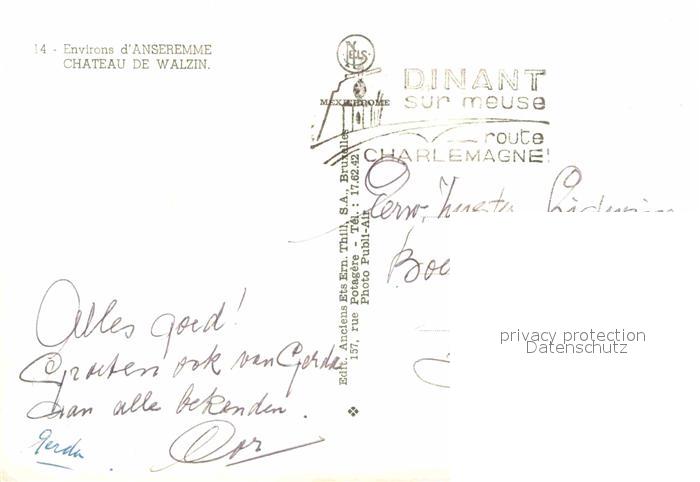 14 - Environs d'ANSEREMME
CHATEAU DE WALZIN.
NELS
MEXICHROME
DINANT
sur meuse
route
CHARLEMAGNE!
Edit. Anciens Ets Ern. Thill, S.A., Bruxelles
157, rue Potagère - Tél. : 17.62.42
Photo Publi-Air
Boe
privacy protection
Datenschutz
Alles goed!
Groeten ook van Gerda
aan alle bekenden.
Gerda
Cor